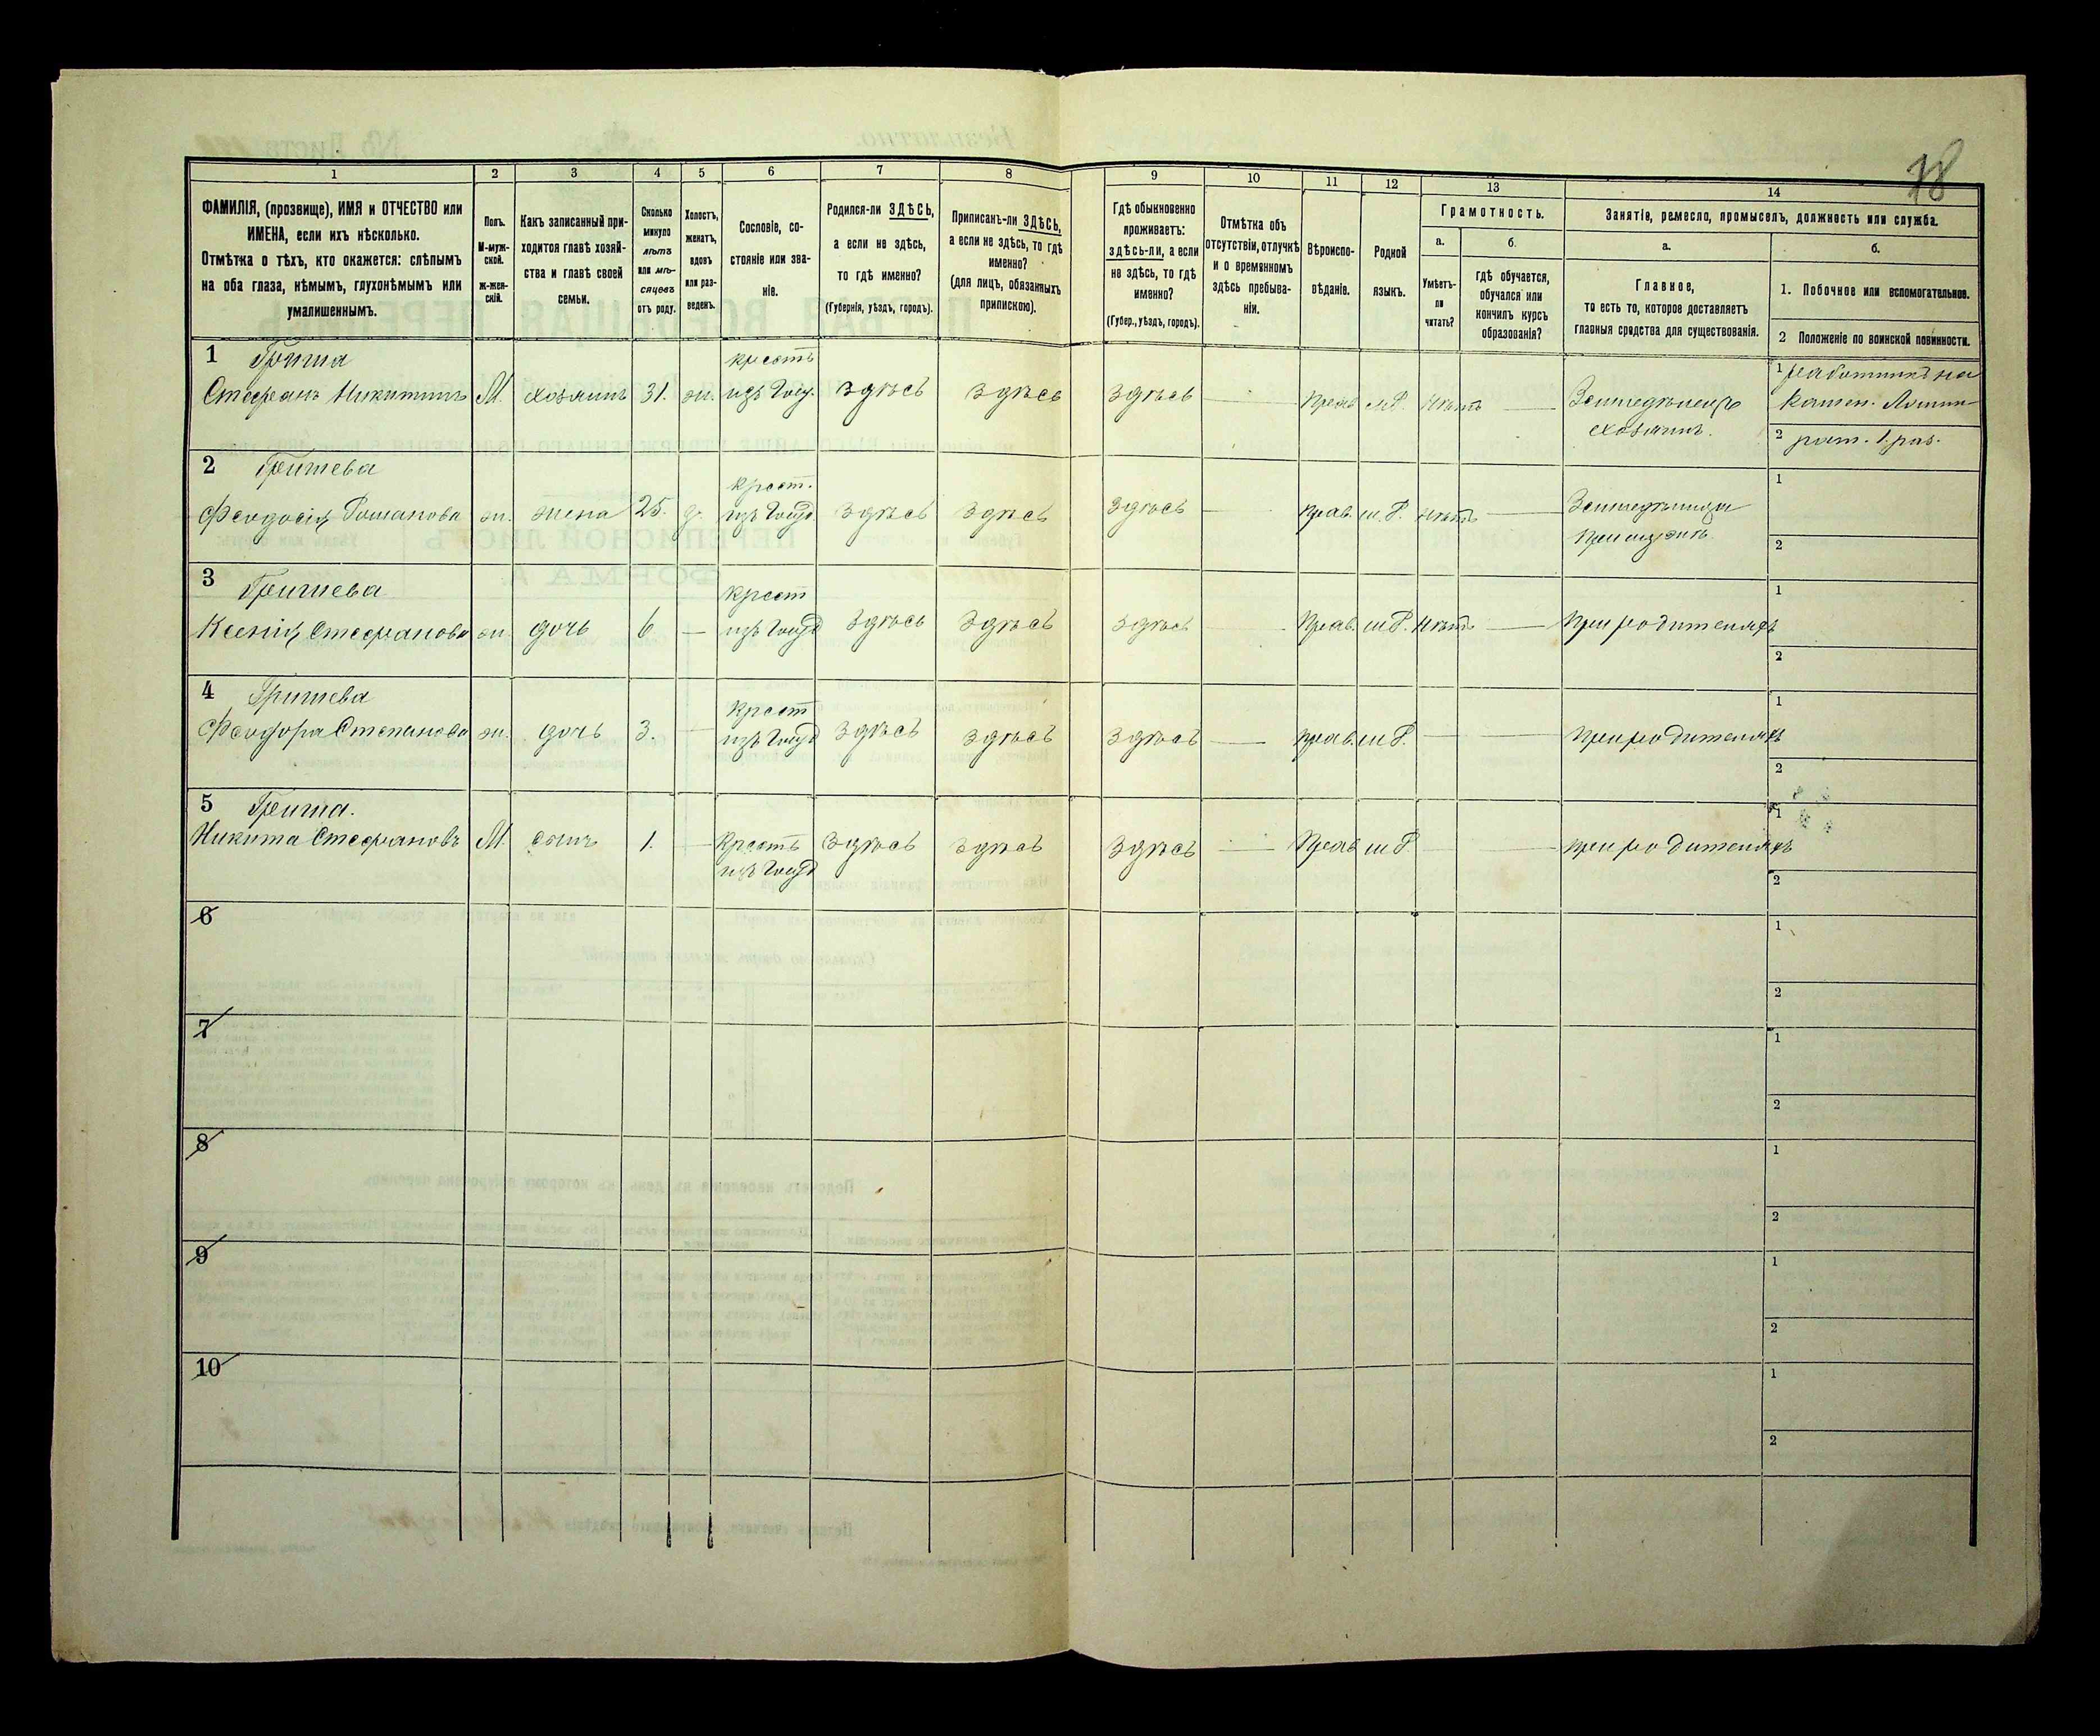 78
1 2 3 4 5 6 7 8 9 10 11 12 13 14
ФАМИЛІЯ, (прозвище), ИМЯ и ОТЧЕСТВО или
ИМЕНА, если ихъ нѣсколько.
Отмѣтка о тѣхъ, кто окажется: слѣпымъ
на оба глаза, нѣмымъ, глухонѣмымъ или
умалишеннымъ.
Полъ.
М-муж-
ской.
Ж-жен-
скій.
Какъ записанный при-
ходится главѣ хозяй-
ства и главѣ своей
семьи.
Сколько
минуло
лѣтъ
или мѣ-
сяцевъ
отъ роду.
Холостъ,
женатъ,
вдовъ
или раз-
веденъ.
Сословіе, со-
стояніе или зва-
ніе.
Родился-ли ЗДѢСЬ,
а если не здѣсь,
то гдѣ именно?
(Губернія, уѣздъ, городъ).
Приписанъ-ли ЗДѢСЬ,
а если не здѣсь, то гдѣ
именно?
(для лицъ, обязанныхъ
припискою).
Гдѣ обыкновенно
проживаетъ:
здѣсь-ли, а если
не здѣсь, то гдѣ
именно?
(Губер., уѣздъ, городъ).
Отмѣтка объ
отсутствіи, отлучкѣ
и о временномъ
здѣсь пребыва-
ніи.
Вѣроиспо-
вѣданіе.
Родной
языкъ.
Грамотность.
а.
Умѣетъ-
ли
читать?
б.
гдѣ обучается,
обучался или
кончилъ курсъ
образованія?
Занятіе, ремесло, промыселъ, должность или служба.
а.
Главное,
то есть то, которое доставляетъ
главныя средства для существованія.
б.
1. Побочное или вспомогательное.
2 Положеніе по воинской повинности.
1 Гриша крестъ 1 работникъ на
Стефанъ Никитинъ М. хозяинъ 31. ж. изъ Госуд. здѣсь здѣсь здѣсь — Прав. м.Р. Нѣтъ — Земледѣлецъ камен.
хозяинъ. 2 рат. 1 раз.
2 Гришева крест. 1
Феодосія Романова ж. жена 25. з. изъ Госуд. здѣсь здѣсь здѣсь — Прав. м.Р. Нѣтъ — Земледѣлица
при мужѣ 2
3 Гришева крест 1
Ксенія Стефанова ж. дочь 6 — изъ Госуд здѣсь здѣсь здѣсь — Прав. м.Р. Нѣтъ — При родителяхъ
2
4 Гришева крест 1
Феодора Степанова ж. дочь 3. — изъ Госуд здѣсь здѣсь здѣсь — Прав. м.Р. — — При родителяхъ
2
5 Гриша. 1
Никита Стефановъ М. сынъ 1. — Крестъ здѣсь здѣсь здѣсь — Прав. м.Р. — при родителяхъ
изъ Госуд 2
6 1
2
7 1
2
8 1
2
9 1
2
10 1
2